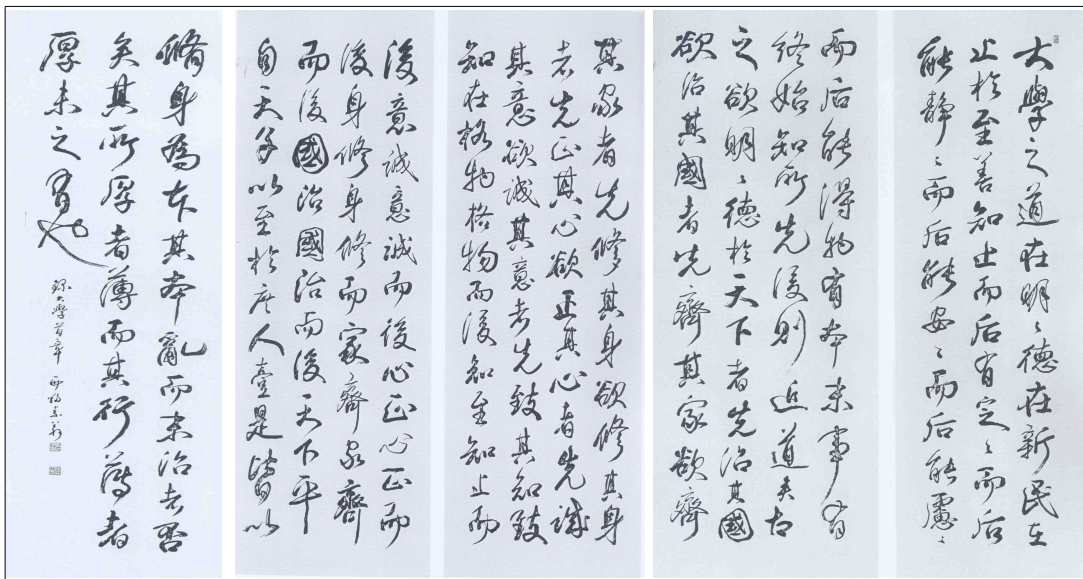 大學之道在明〻德在新民在
止於至善知止而后有定〻而后
能靜〻而后能安〻而后能慮〻
而后能得物有本末事有
終始知所先後則近道矣古
之欲明〻德於天下者先治其國
欲治其國者先齊其家欲齊
其家者先修其身欲修其身
者先正其心欲正其心者先誠
其意欲誠其意者先致其知致
知在格物格物而後知至知止而
後意誠意誠而後心正心正而
後身修身修而家齊家齊
而後國治國治而後天下平
自天子以至於庶人壹是皆以
脩身為本其本亂而末治者否
矣其所厚者薄而其所薄者
厚未之有也
錄大學首章